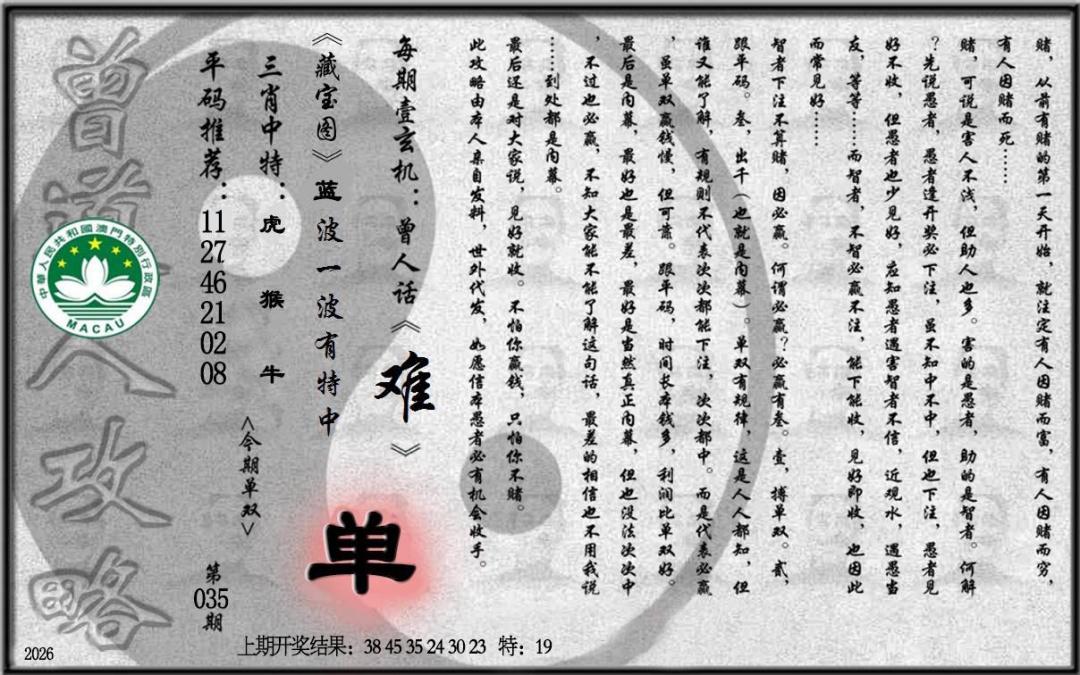 赌，从前有赌的第一天开始，就注定有人因赌而富，有人因赌而穷，
有人因赌而死……
赌，可说是害人不浅，但助人也多。害的是愚者，助的是智者。何解
？先说愚者，愚者逢开奖必下注，虽不知中不中，但也下注，愚者见
好不收，但愚者也少见好，应知愚者遇害智者不信，近观水，遇愚当
友，等等……而智者，不智必赢不注，能下能收，见好即收，也因此
而常见好……
智者下注不算赌，因必赢。何谓必赢？必赢有叁。壹，搏单双。贰，
跟平码。叁，出千（也就是内幕）。单双有规律，这是人人都知，但
谁又能了解，有规则不代表次次都能下注，次次都中。而是代表必赢
，虽单双赢钱慢，但可靠。跟平码，时间长本钱多，利润比单双好。
最后是内幕，最好也是最差，最好是当然真正内幕，但也没法次次中
，不过也必赢，不知大家能不能了解这句话，最差的相信也不用我说
……到处都是内幕。
最后还是对大家说，见好就收。不怕你赢钱，只怕你不赌。
此攻略由本人亲自发料，世外代发，如愿信本愚者必有机会收手。
每期壹玄机：曾人话《难》
《藏宝图》蓝波一波有特中
单
三肖中特：虎 猴 牛
<今期单双>
平码推荐：11 27 46 21 02 08
第035期
曾道人攻略
中華人民共和國澳門特別行政區
MACAU
2026
上期开奖结果：38 45 35 24 30 23 特：19